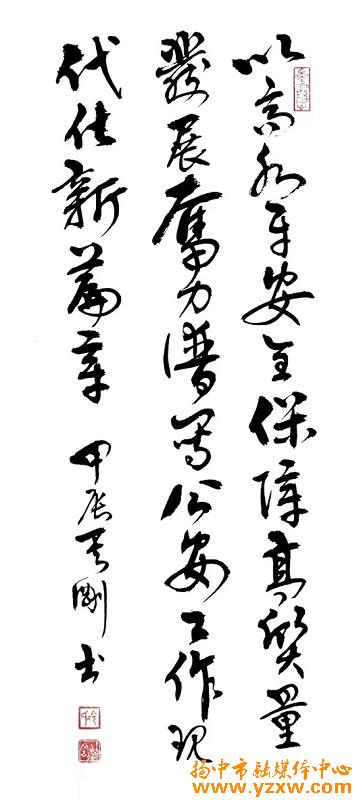 以高水平安全保障高質量
發展奮力譜寫公安工作現
代化新篇章
甲辰 剛書
扬中市融媒体中心
www.yzxw.com